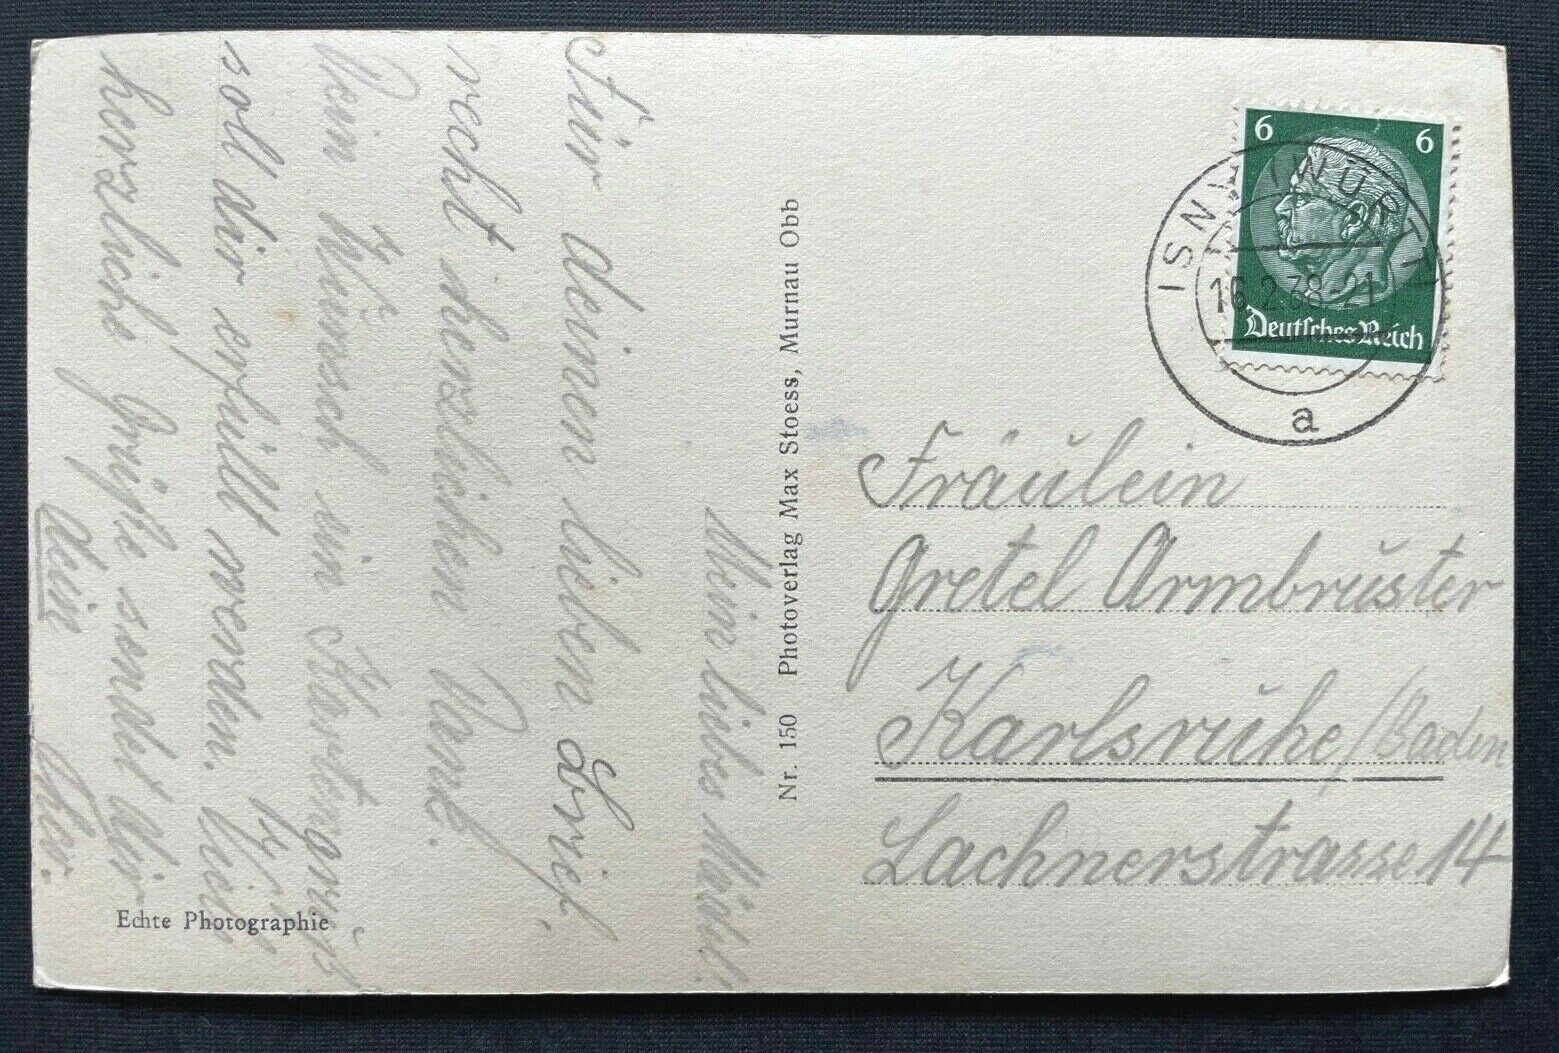 6 6
Deutsches Reich
ISNY (WÜRTT)
16.2.38-21
a
Fräulein
Gretel Armbrŭster
Karlsrŭhe/Baden
Lachnerstrasse 14
Nr. 150 Photoverlag Max Stoess, Murnau Obb
Mein liebes Mädel.
Für deinen lieben Brief
recht herzlichen Dank.
Dein Wunsch ein Kartengruß
soll dir erfüllt werden. Viele
herzliche Grüße sendet dir
dein
Echte Photographie